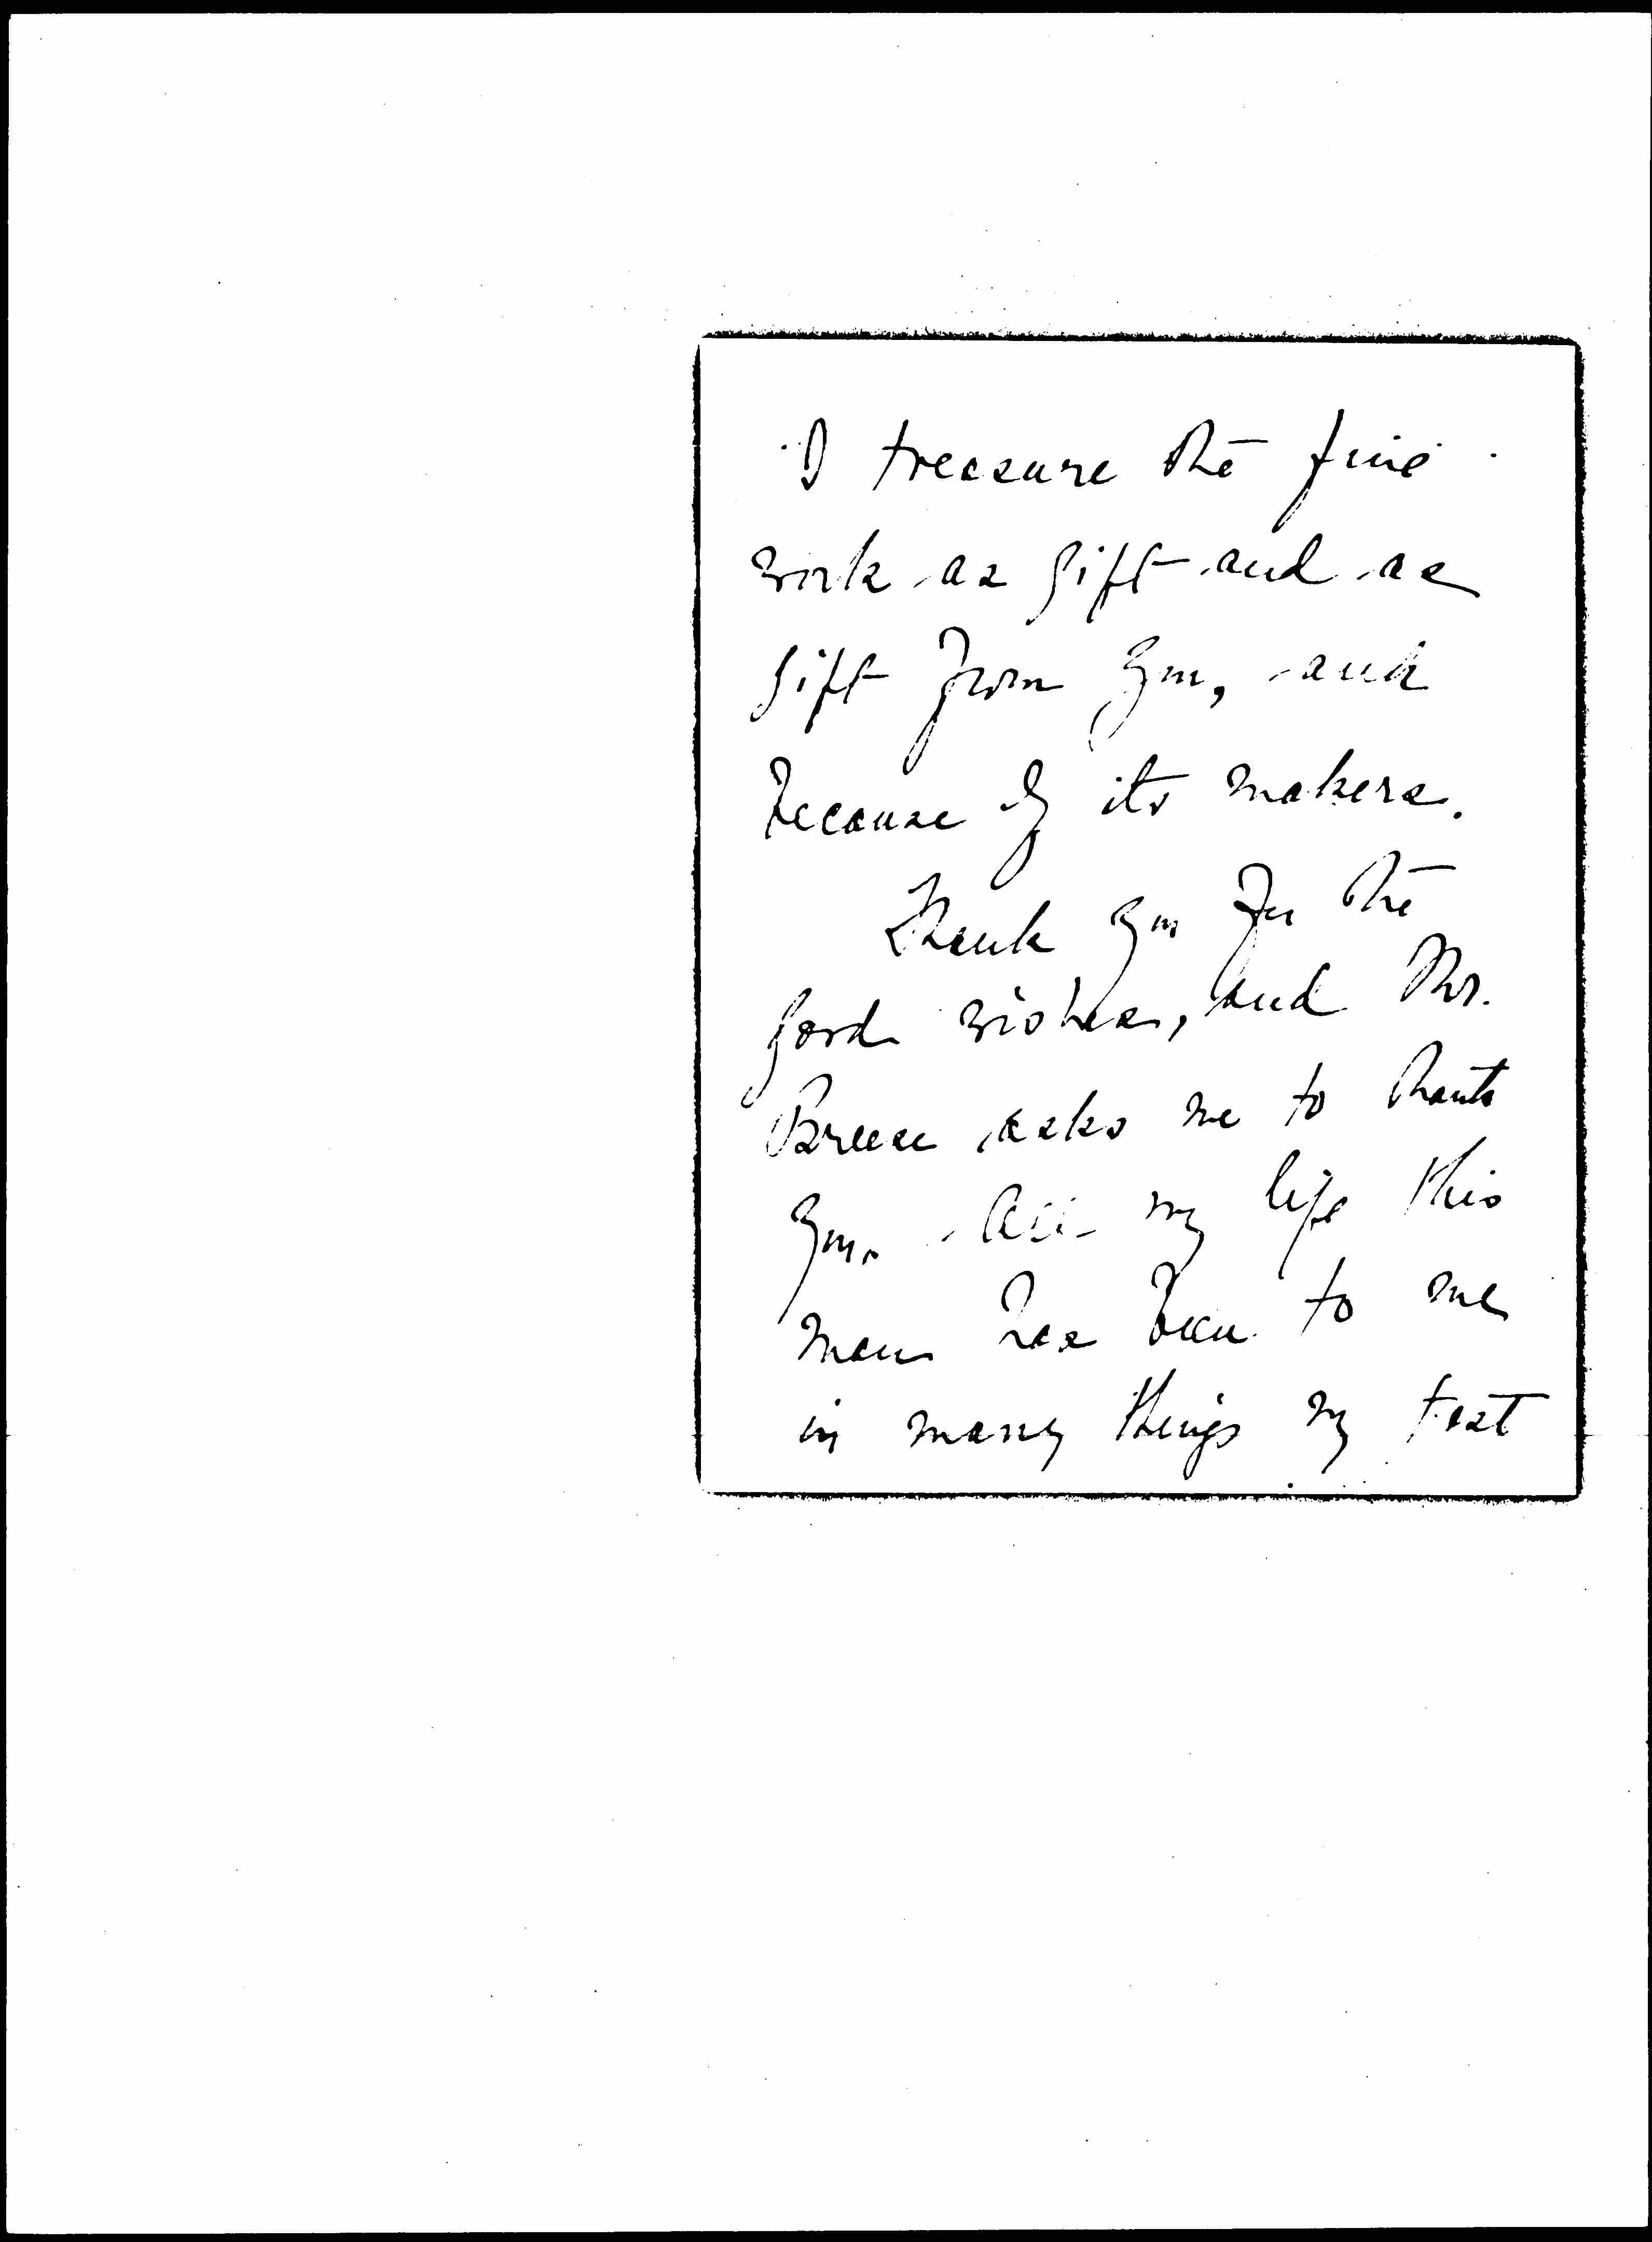 I treasure the fine
work as gift and as
gift from you, and
because of its makers.
Thank you for the
good wishes, and Mr.
Breese asks me to thank
you. All my life this
man has been to me
in many things my test